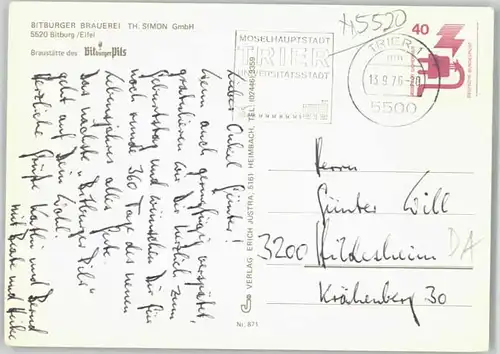 BITBURGER BRAUEREI TH. SIMON GmbH
5520 Bitburg/Eifel
Braustätte des Bitburger Pils
H5520
MOSELHAUPTSTADT
TRIER
UNIVERSITÄTSSTADT
TRIER 1
mm
13.9.76-20
5500
40
DEUTSCHE BUNDESPOST
Lieber Onkel Günter!
Wenn auch geringfügig verspätet,
gratulieren wir Dir herzlich zum
Geburtstag und wünschen Dir für
noch runde 360 Tage des neuen
Lebensjahres alles Gute.
Das nächste "Bitburger Pils"
geht auf Dein Wohl.
Herzliche Grüße Kathi und Bernd
mit Beate und Heike
VERLAG ERICH JUSTRA, 5161 HEIMBACH, TEL. (02446) 3359
Nr. 871
Herrn
Günter Will
3200 Hildesheim
DA
Krähenberg 30